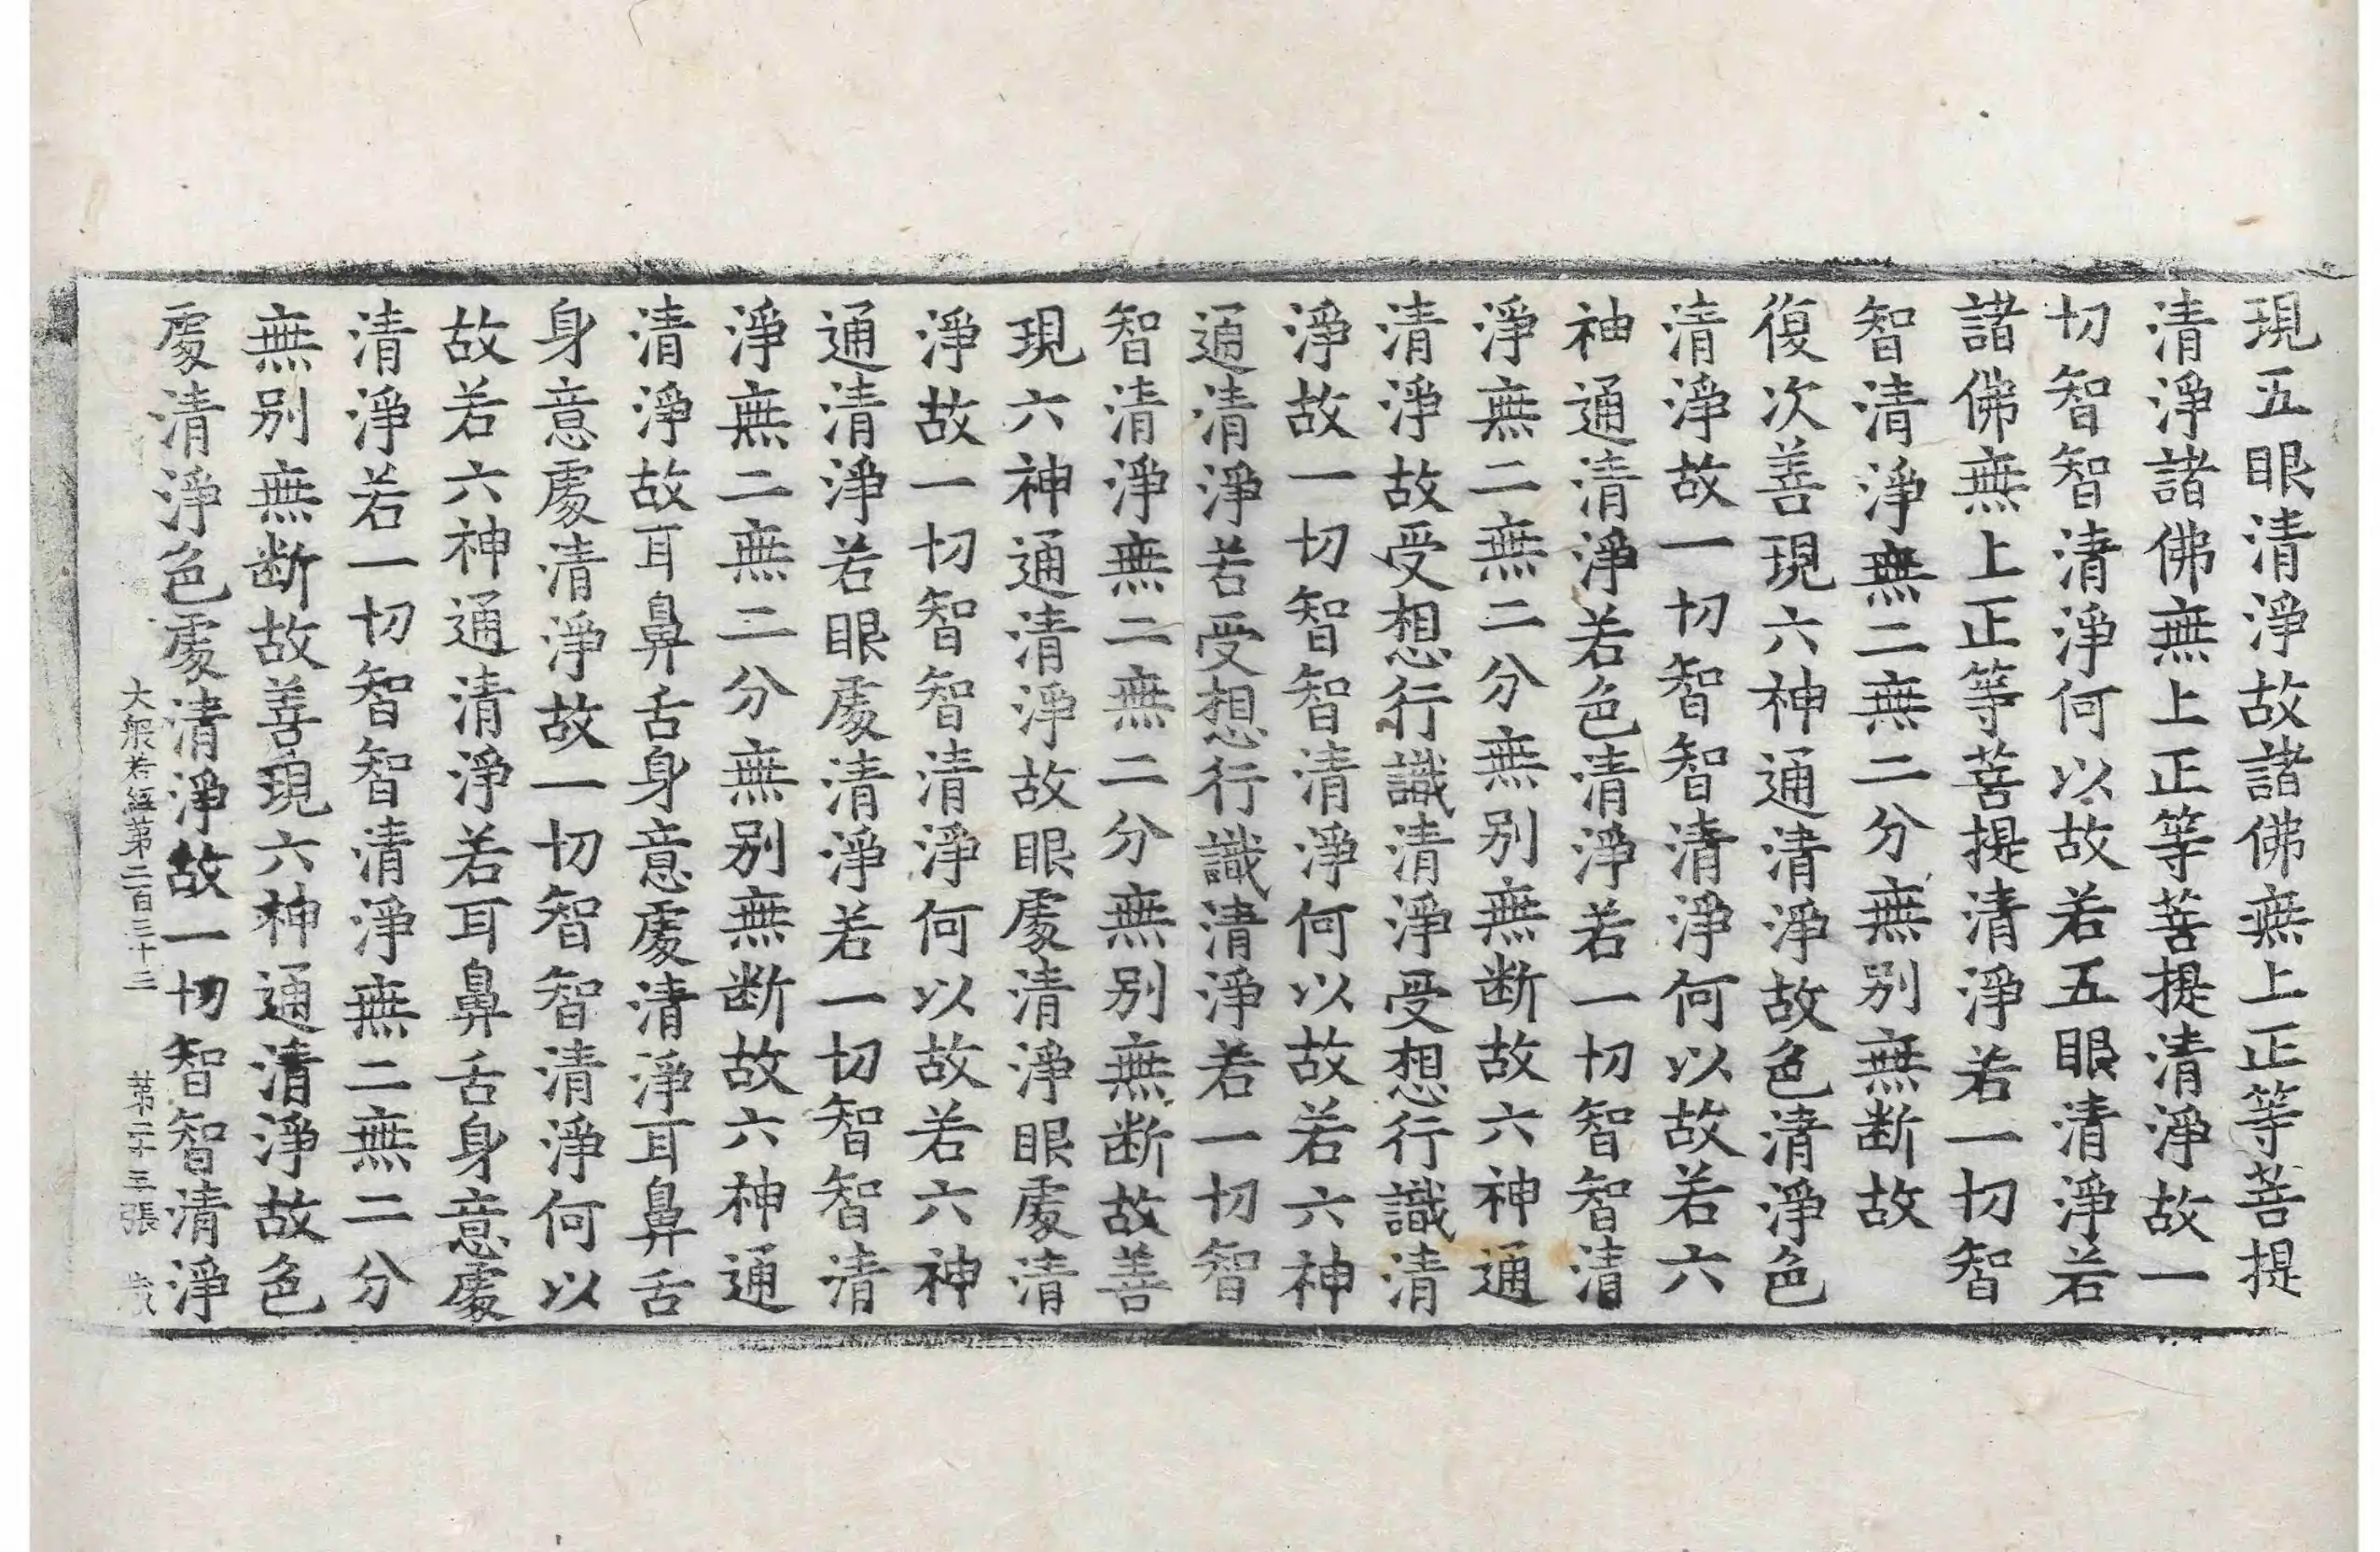 現五眼清淨故諸佛無上正等菩提
清淨諸佛無上正等菩提清淨故一
切智智清淨何以故若五眼清淨若
諸佛無上正等菩提清淨若一切智
智清淨無二無二分無別無断故
復次善現六神通清淨故色清淨色
清淨故一切智智清淨何以故若六
神通清淨若色清淨若一切智智清
淨無二無二分無別無断故六神通
清淨故受想行識清淨受想行識清
淨故一切智智清淨何以故若六神
通清淨若受想行識清淨若一切智
智清淨無二無二分無別無断故善
現六神通清淨故眼處清淨眼處清
淨故一切智智清淨何以故若六神
通清淨若眼處清淨若一切智智清
淨無二無二分無別無断故六神通
清淨故耳鼻舌身意處清淨耳鼻舌
身意處清淨故一切智智清淨何以
故若六神通清淨若耳鼻舌身意處
清淨若一切智智清淨無二無二分
無別無断故善現六神通清淨故色
處清淨色處清淨故一切智智清淨
大般若經第二百三十三 第二十三張